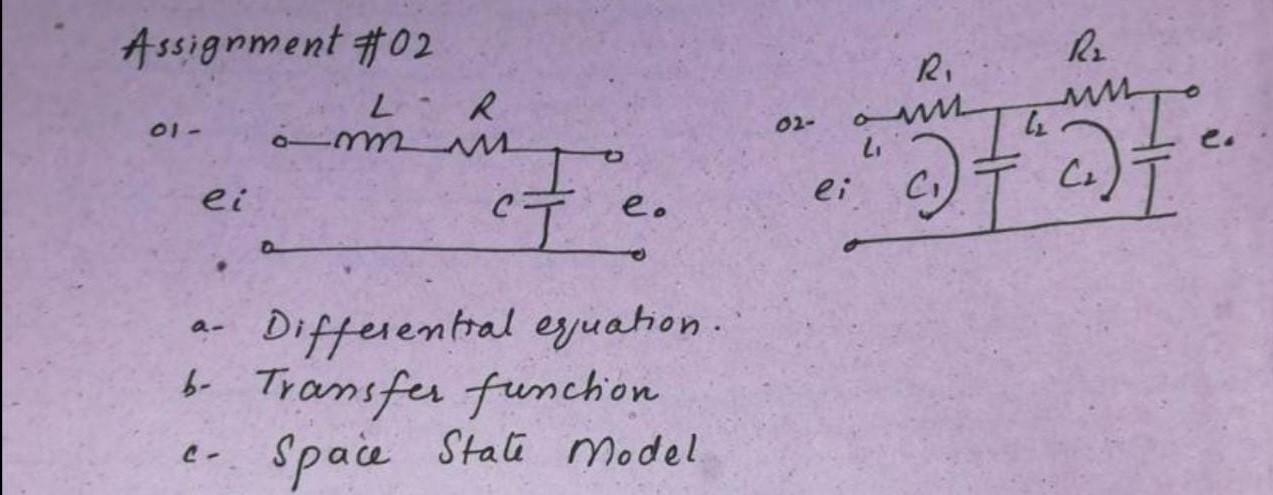 Assignment #02
01-
L R
ei
C
eo
02-
R1
R2
i1
i2
ei
C1
C2
eo
a- Differential equation.
b- Transfer function
c- Space State Model